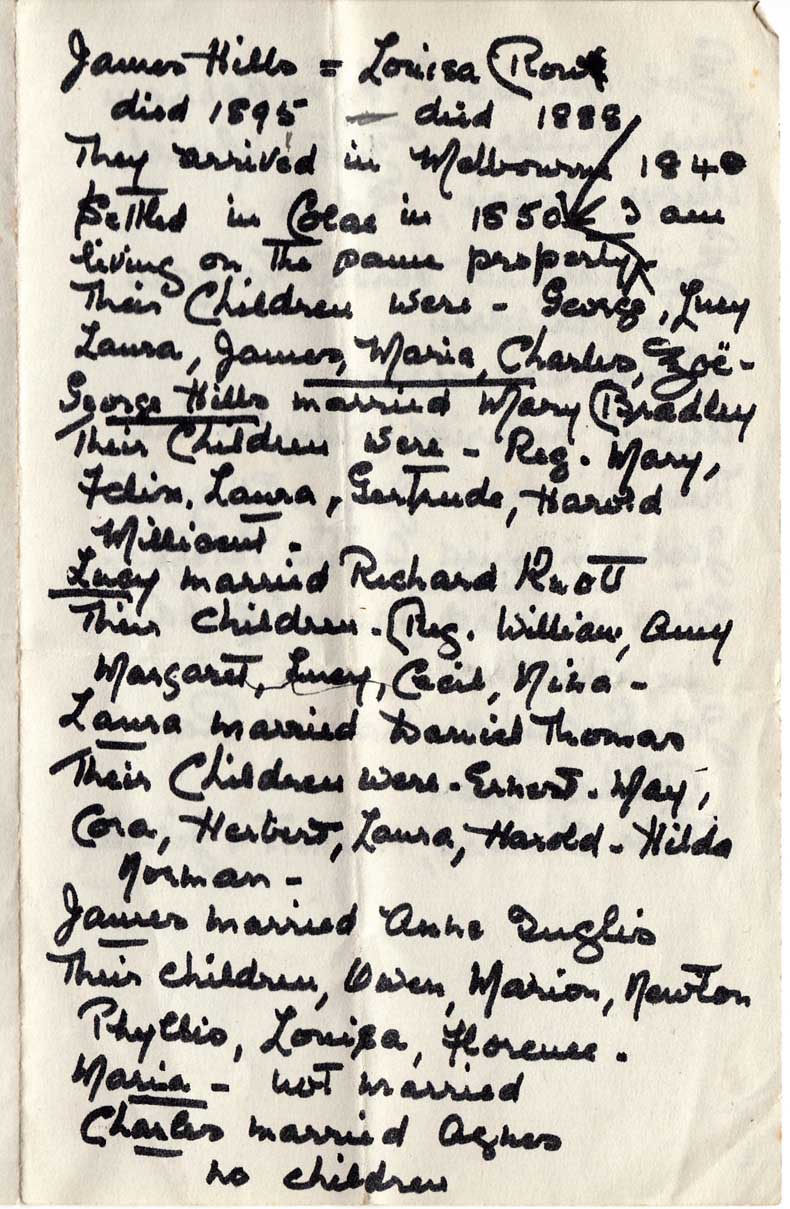 James Hills = Louisa (Row
died 1895 — died 1888
They arrived in Melbourne 1840
Settled in Colac in 1850 I am
living on the same property
Their Children were - George, Lucy
Laura, James, Maria, Charles, Zoë -
George Hills married Mary Bradley
Their Children were - Reg. Mary,
Felix, Laura, Gertrude, Harold
Millicent -
Lucy married Richard Knott
Their children - Reg. William, Amy
Margaret, Lucy, Cecil, Nina -
Laura married Daniel Thomas
Their Children were - Ernest - May,
Cora, Herbert, Laura, Harold - Hilda
Norman -
James married Anne Inglis
Their children, Owen, Marion, Newton
Phyllis, Louisa, Florence.
Maria - not married
Charles married Agnes
no children